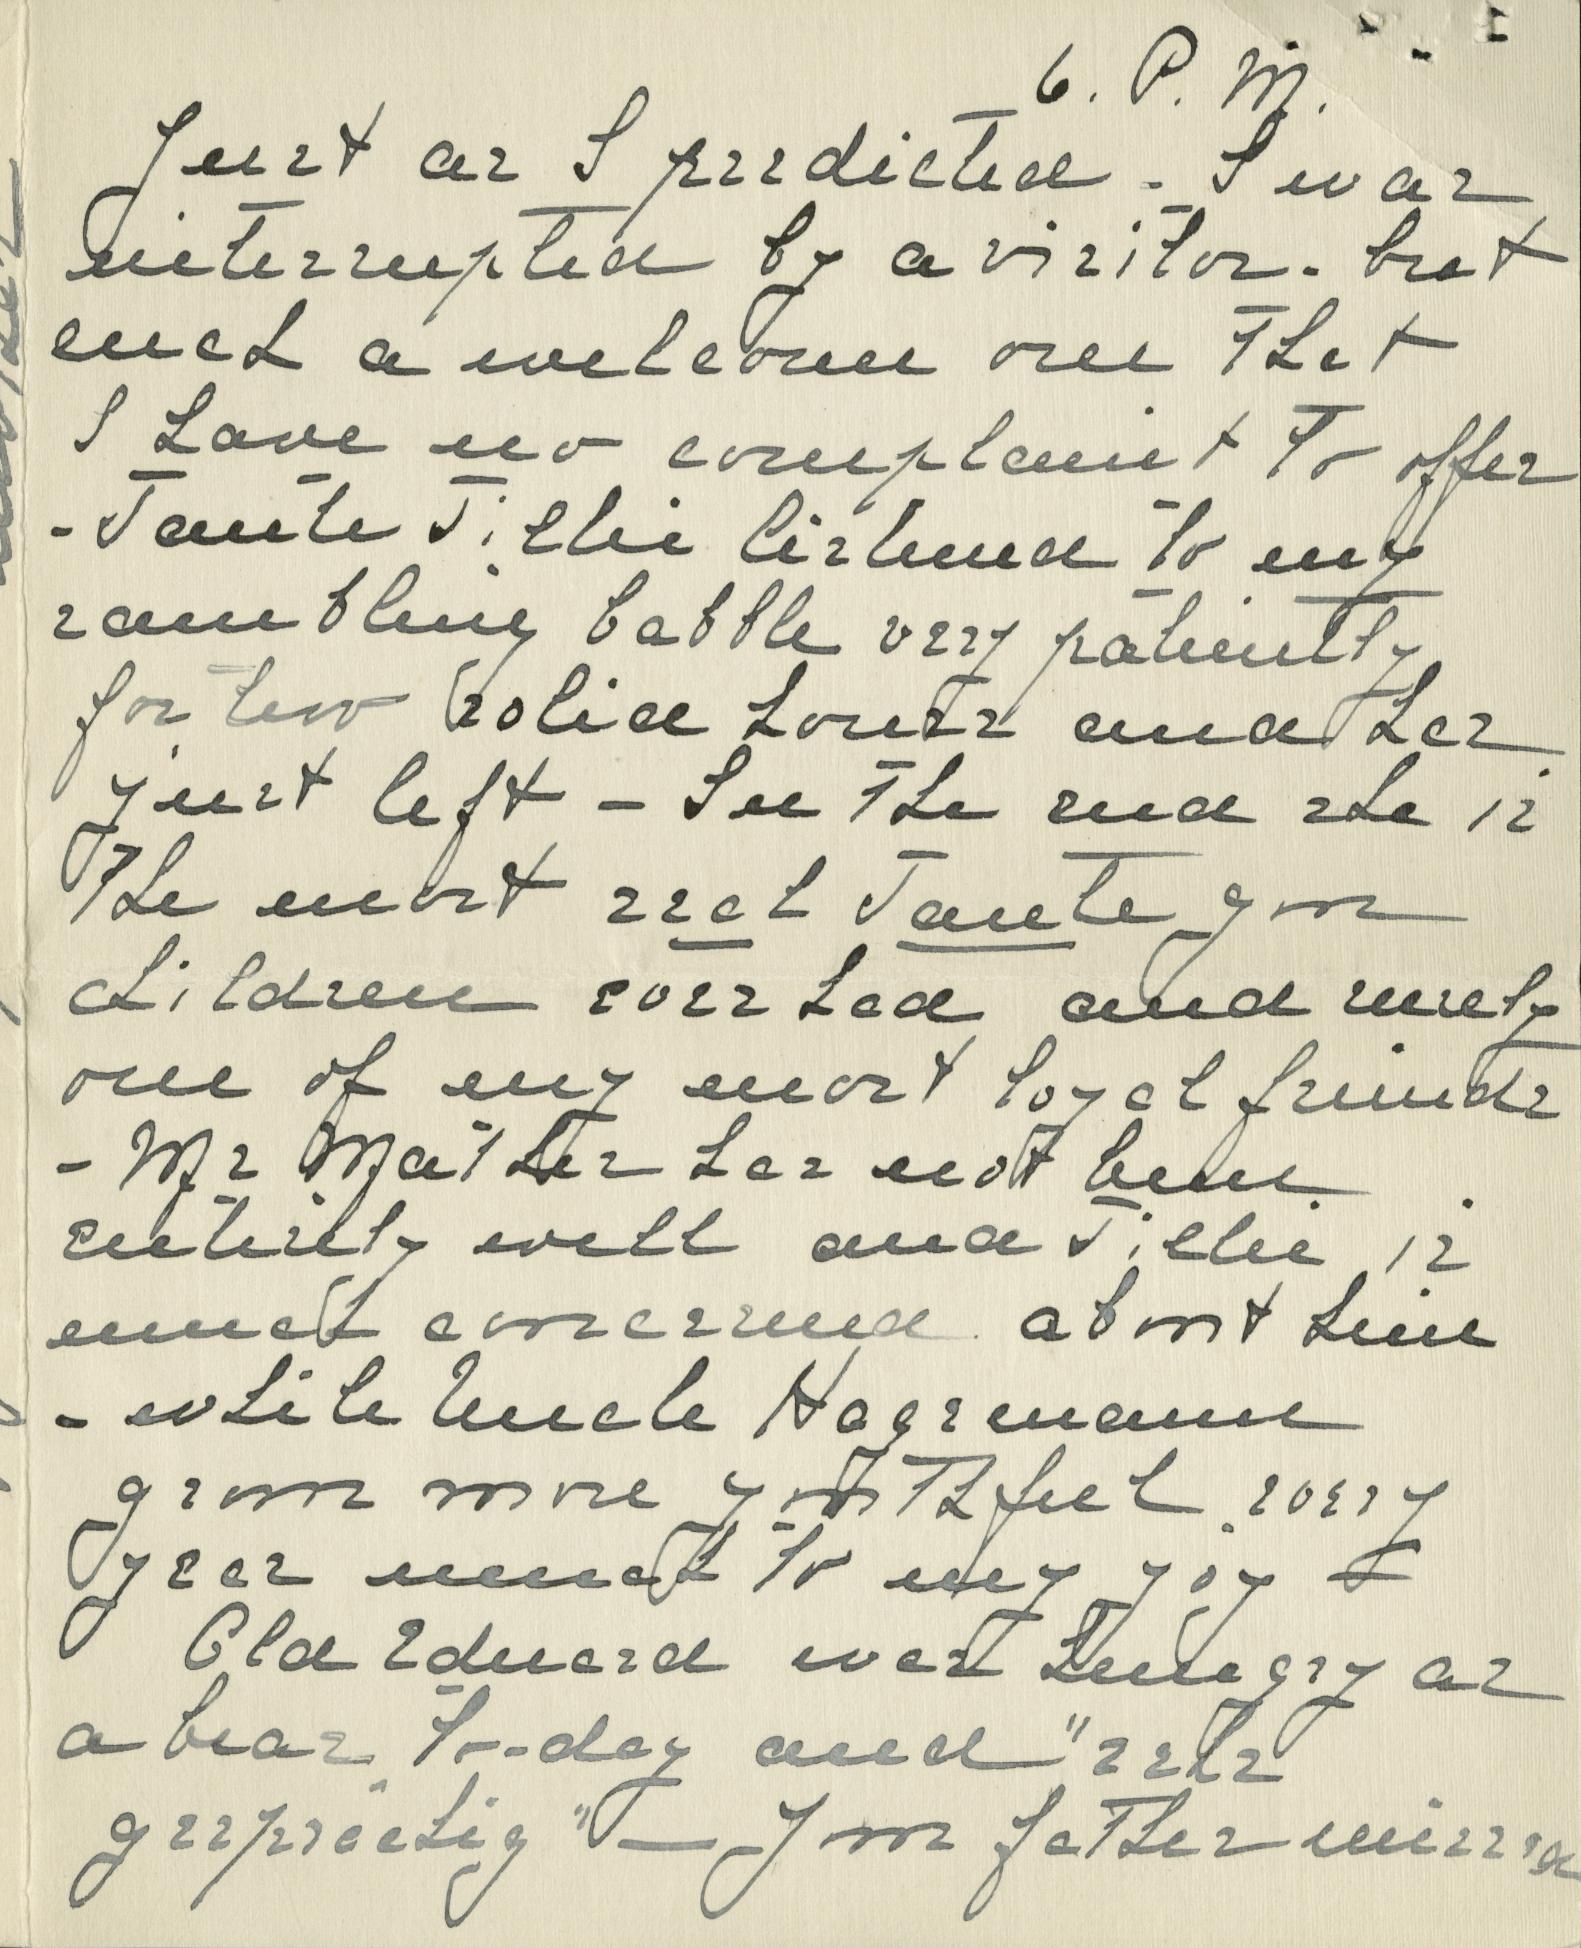 6. P. M.
Just as I predicted - I was
interrupted by a visitor - but
such a welcome one that
I have no complaint to offer
- Tante Tillie listened to my
rambling babble very patiently
for two solid hours and has
just left - In the end she is
the most real Tante you
children ever had and surely
one of my most loyal friends
- Mr Mather has not been
entirely well and Tillie is
much concerned about him
- while Uncle Hagemann
grows more youthful every
year much to my joy -
Old Eduard was hungry as
a bear to-day and "sehr
gesprächig" - Your father missed